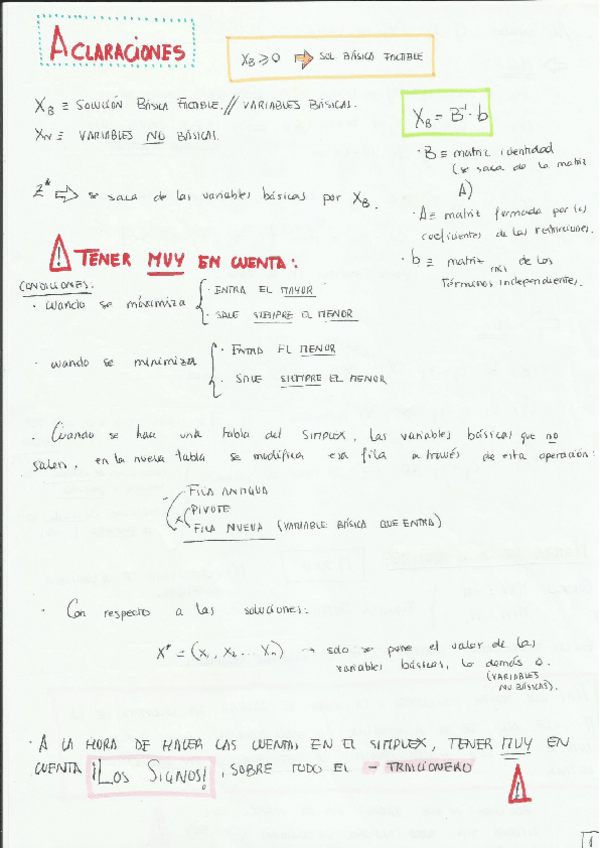 ACLARACIONES
X_B ≥ 0 ⇨ SOL BÁSICA FACTIBLE
X_B ≡ SOLUCIÓN BÁSICA FACTIBLE // VARIABLES BÁSICAS.
X_N ≡ VARIABLES NO BÁSICAS.
X_B = B⁻¹ · b
· B ≡ matriz identidad
(se saca de la matriz
A)
· A ≡ matriz formada por los
coeficientes de las restricciones.
· b ≡ matriz de los
términos independientes.
Z* ⇨ se saca de las variables básicas por X_B.
⚠ TENER MUY EN CUENTA:
CONDICIONES:
· cuando se máximiza { · ENTRA EL MAYOR
· SALE SIEMPRE EL MENOR
· cuando se minimiza { · ENTRA EL MENOR
· SALE SIEMPRE EL MENOR
· Cuando se hace una tabla del SIMPLEX, las variables básicas que no
salen, en la nueva tabla se modifica esa fila a través de esta operación:
- FILA ANTIGUA
x PIVOTE
FILA NUEVA (VARIABLE BÁSICA QUE ENTRA)
· Con respecto a las soluciones:
X* = (X₁, X₂ ... Xₙ) → solo se pone el valor de las
variables básicas, lo demás 0.
(VARIABLES
NO BÁSICAS).
· A LA HORA DE HACER LAS CUENTAS EN EL SIMPLEX, TENER MUY EN
CUENTA ¡LOS SIGNOS!, SOBRE TODO EL - TRAICIONERO
1